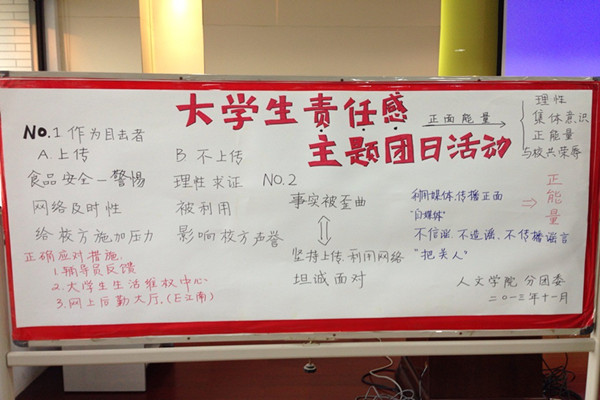 大学生责任感
主题团日活动
正面能量
理性
集体意识
正能量
与校共荣辱
NO.1 作为目击者
A.上传
B 不上传
食品安全—警惕
理性求证
网络及时性
被利用
给校方施加压力
影响校方声誉
正确应对措施:
1.辅导员反馈
2.大学生生活维权中心
3.网上后勤大厅.(E江南)
NO.2
事实被歪曲
坚持上传,利用网络
坦诚面对
利用媒体,传播正面
"自媒体"
不信谣、不造谣、不传播谣言
"把关人"
正能量
人文学院 分团委
二〇一三年十一月